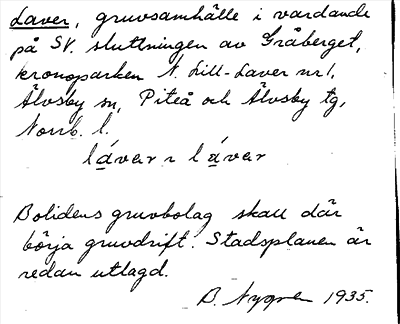 Laver, gruvsamhälle i vardande
på SV. sluttningen av Gråberget,
kronoparken N. Lill-Laver nr 1,
Älvsby sn, Piteå och Älvsby tg,
Norrb. l.
láver ~ láver
Bolidens gruvbolag skall där
börja gruvdrift. Stadsplanen är
redan utlagd.
B. Nygren 1935.